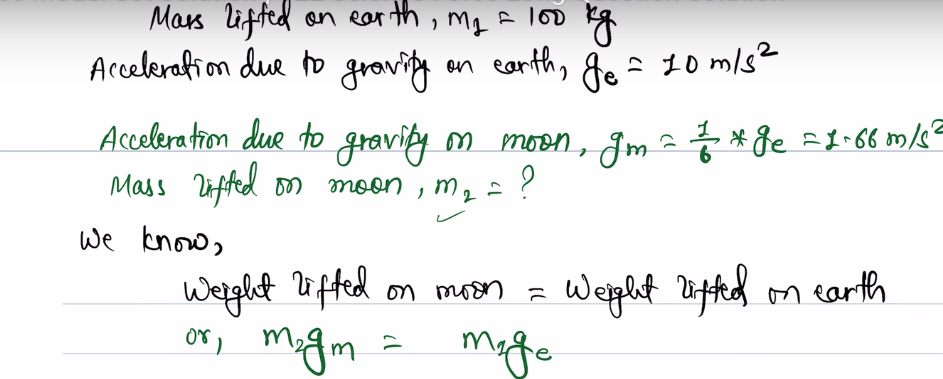 Mass lifted on earth, m₁ = 100 kg
Acceleration due to gravity on earth, gₑ = 10 m/s²
Acceleration due to gravity on moon, gₘ = 1/6 * gₑ = 1.66 m/s²
Mass lifted on moon, m₂ = ?
We know,
Weight lifted on moon = Weight lifted on earth
or, m₂gₘ = m₁gₑ